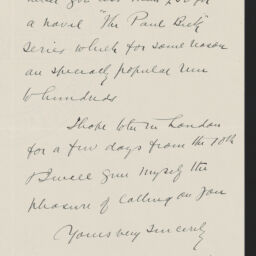 never got less than £50 for
a novel "The Paul Beck"
series which for some reason
are specially popular run
to hundreds
I hope to be in London
for a few days from the 10th
& will give myself the
pleasure of calling on you
Yours very sincerely